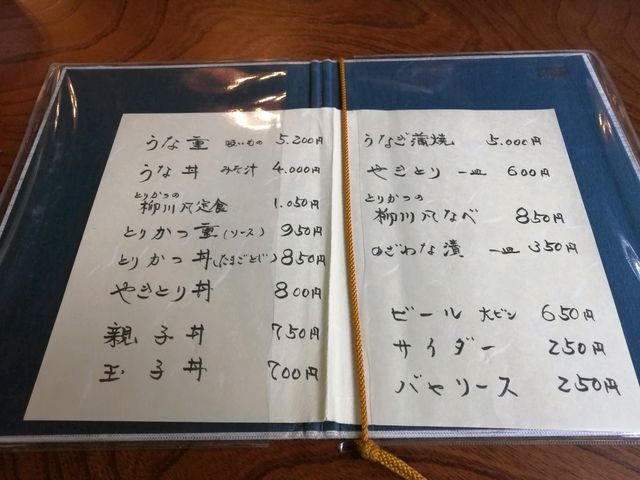 うな重 吸いもの 5.200円
うな丼 みそ汁 4.000円
とりかつの
柳川风定食 1.050円
とりかつ重(ソース) 950円
とりかつ丼(たまごとじ) 850円
やきとり丼 800円
親子丼 750円
玉子丼 700円
うなぎ蒲焼 5.000円
やきとり 一皿 600円
とりかつの
柳川风なべ 850円
のざわな漬 一皿 350円
ビール 大ビン 650円
サイダー 250円
バヤリース 250円